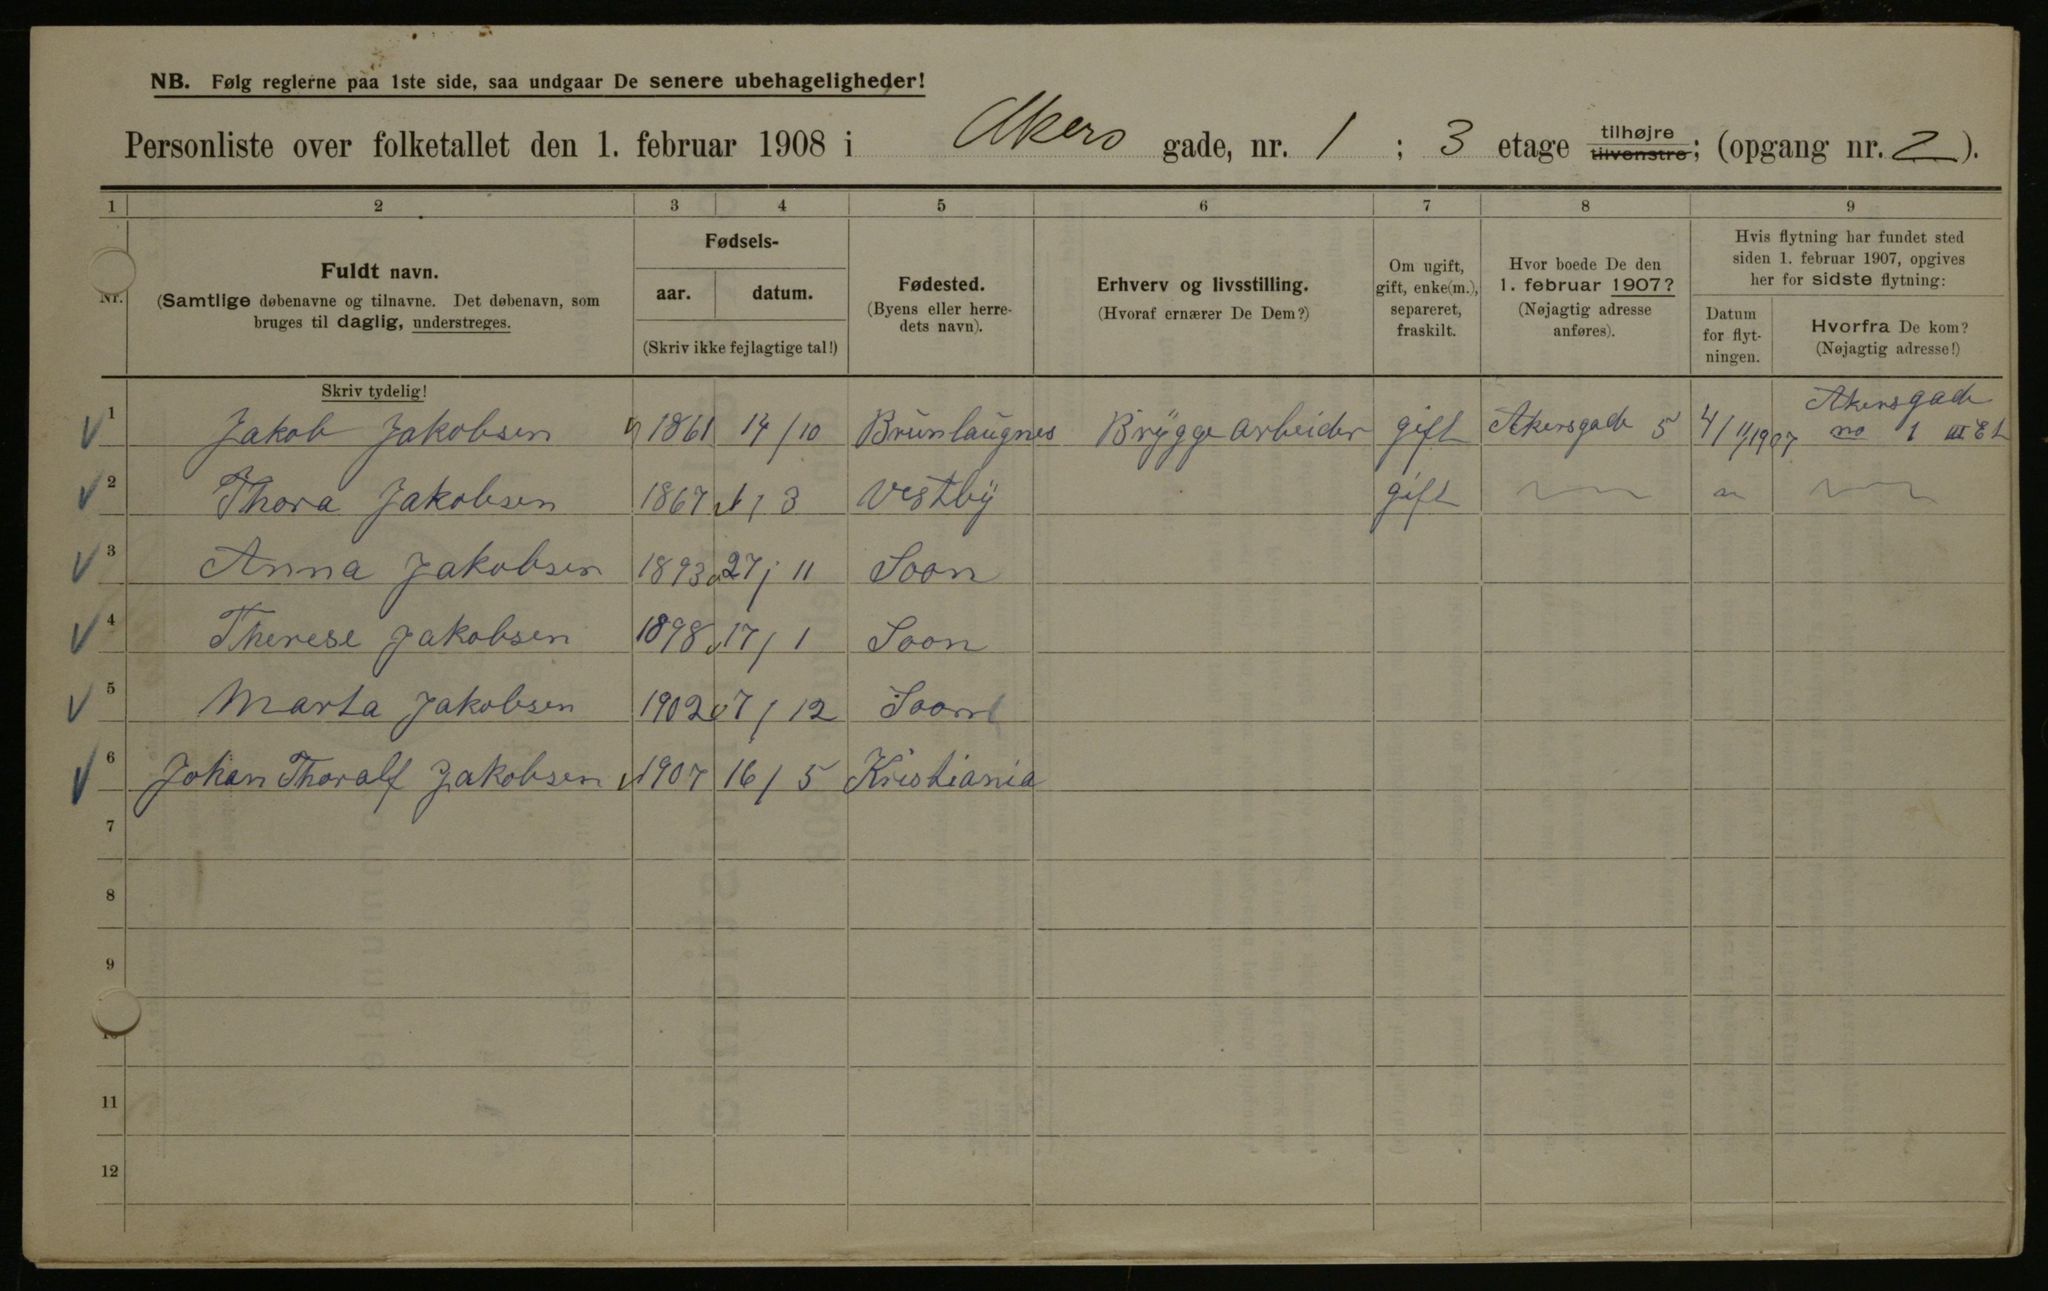 NB. Følg reglerne paa 1ste side, saa undgaar De senere ubehageligheder!
Personliste over folketallet den 1. februar 1908 i Akers gade, nr. 1 ; 3 etage tilhøjre tilvenstre; (opgang nr. 2).
1 2 3 4 5 6 7 8 9
Nr.
Fuldt navn.
(Samtlige døbenavne og tilnavne. Det døbenavn, som
bruges til daglig, understreges.
Skriv tydelig!
Fødsels-
aar. datum.
(Skriv ikke fejlagtige tal!)
Fødested.
(Byens eller herre-
dets navn).
Erhverv og livsstilling.
(Hvoraf ernærer De Dem?)
Om ugift,
gift, enke(m.),
separeret,
fraskilt.
Hvor boede De den
1. februar 1907?
(Nøjagtig adresse
anføres).
Hvis flytning har fundet sted
siden 1. februar 1907, opgives
her for sidste flytning:
Datum
for flyt-
ningen.
Hvorfra De kom?
(Nøjagtig adresse!)
1 Jakob Jakobsen 1861 14/10 Brunlaugnes Brygge arbeider gift Akersgade 5 4/11 1907 Akersgade no 1 III Et
2 Thora Jakobsen 1867 1/3 Vestby gift
3 Anna Jakobsen 1893 27/11 Soon
4 Therese Jakobsen 1898 17/1 Soon
5 Marta Jakobsen 1902 7/12 Soon
6 Johan Thoralf Jakobsen 1907 16/5 Kristiania
7
8
9
10
11
12